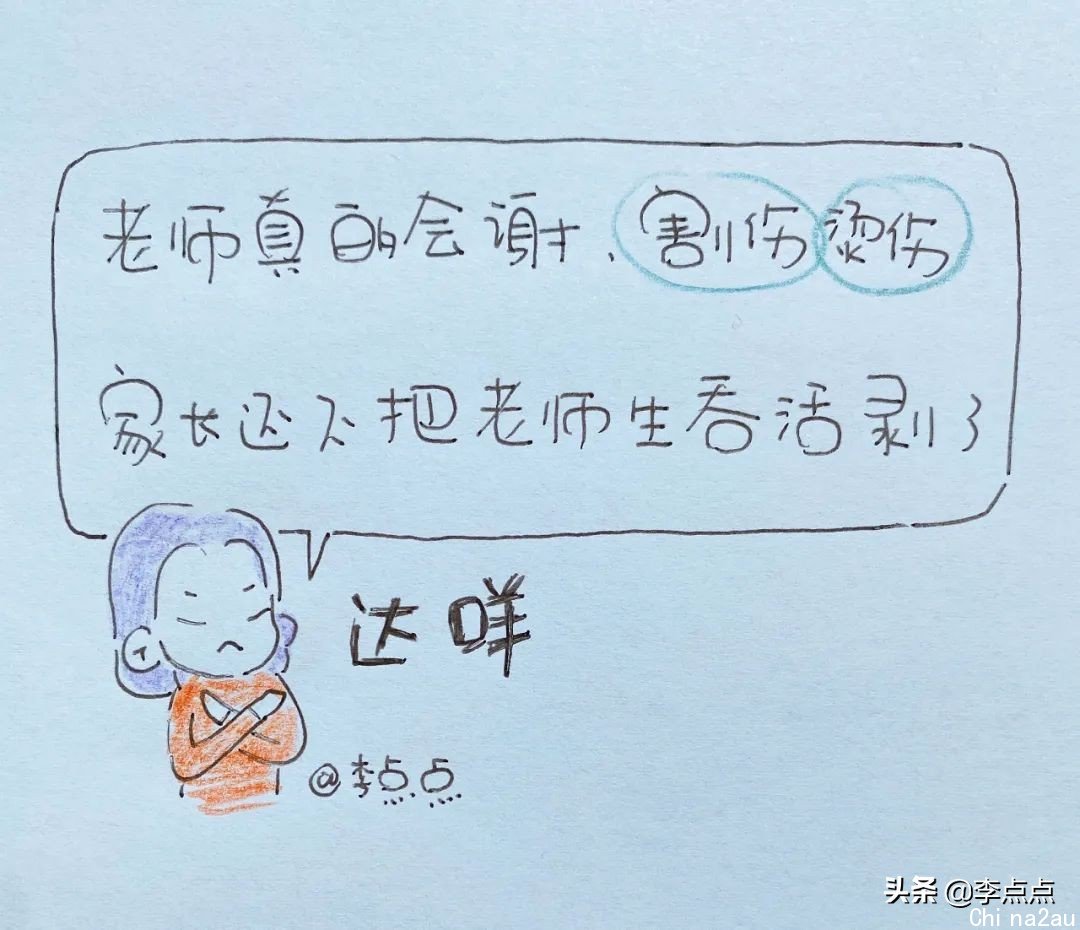 老师真的会谢、割伤烫伤
家长还不把老师生吞活剥了
达咩
@李点点
头条 @李点点
Chi na2au